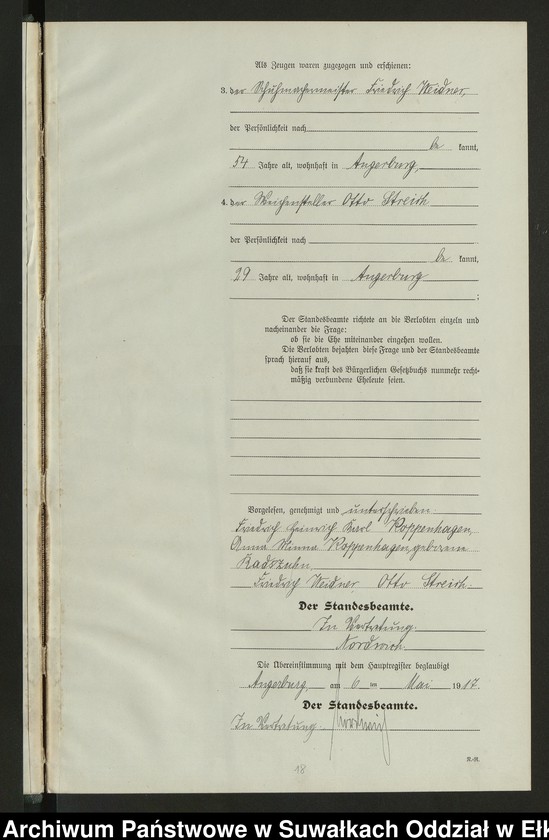 Als Zeugen waren zugezogen und erschienen:
3. der Schuhmachermeister Friedrich Weidner,
der Persönlichkeit nach
be kannt,
54 Jahre alt, wohnhaft in Angerburg,
4. der Weichensteller Otto Streich
der Persönlichkeit nach
be kannt,
29 Jahre alt, wohnhaft in Angerburg
;
Der Standesbeamte richtete an die Verlobten einzeln und
nacheinander die Frage:
ob sie die Ehe miteinander eingehen wollen.
Die Verlobten bejahten diese Frage und der Standesbeamte
sprach hierauf aus,
daß sie kraft des Bürgerlichen Gesetzbuchs nunmehr recht-
mäßig verbundene Eheleute seien.
Vorgelesen, genehmigt und unterschrieben
Friedrich Heinrich Karl Koppenhagen,
Anna Minna Koppenhagen, geborene
Kadszuhn
Friedrich Weidner Otto Streich
Der Standesbeamte.
In Vertretung.
Die Übereinstimmung mit dem Hauptregister beglaubigt
Angerburg, am 6 ten Mai 1917.
Der Standesbeamte.
In Vertretung
18
Archiwum Państwowe w Suwałkach Oddział w Ełk